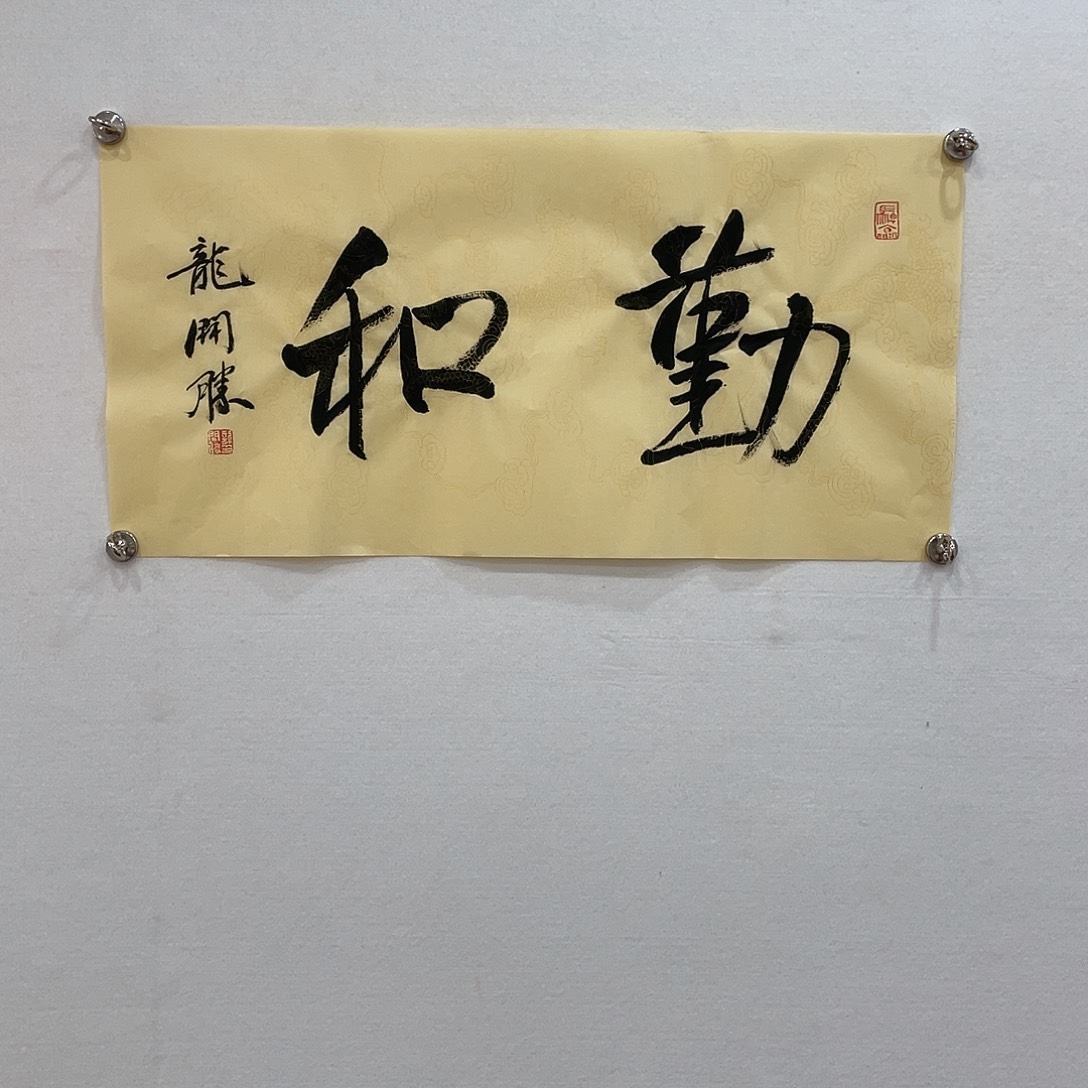 勤和
龍開勝